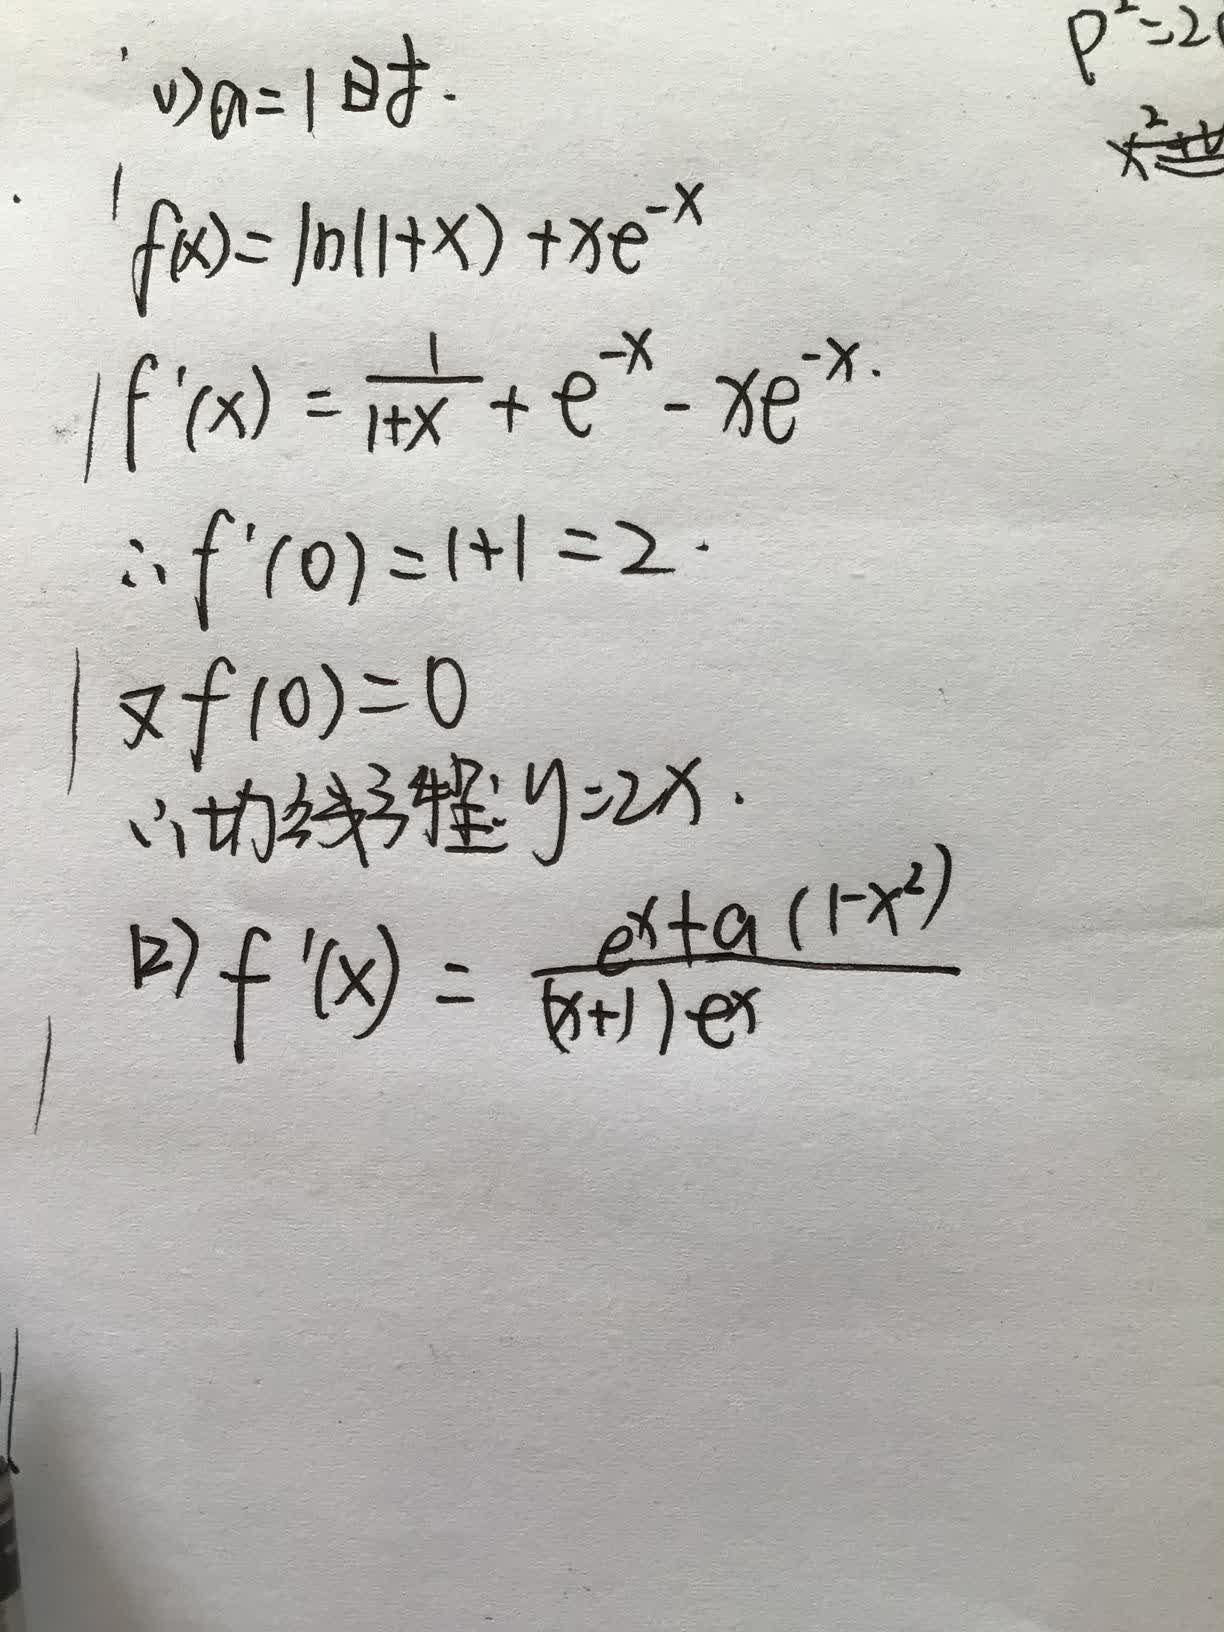 (1) a=1时.
f(x)=ln(1+x)+xe^{-x}
f'(x)=\frac{1}{1+x}+e^{-x}-xe^{-x}.
∴f'(0)=1+1=2.
又f(0)=0
∴切线方程:y=2x.
(2) f'(x)=\frac{e^x+a(1-x^2)}{(x+1)e^x}
p^2=2
x^2